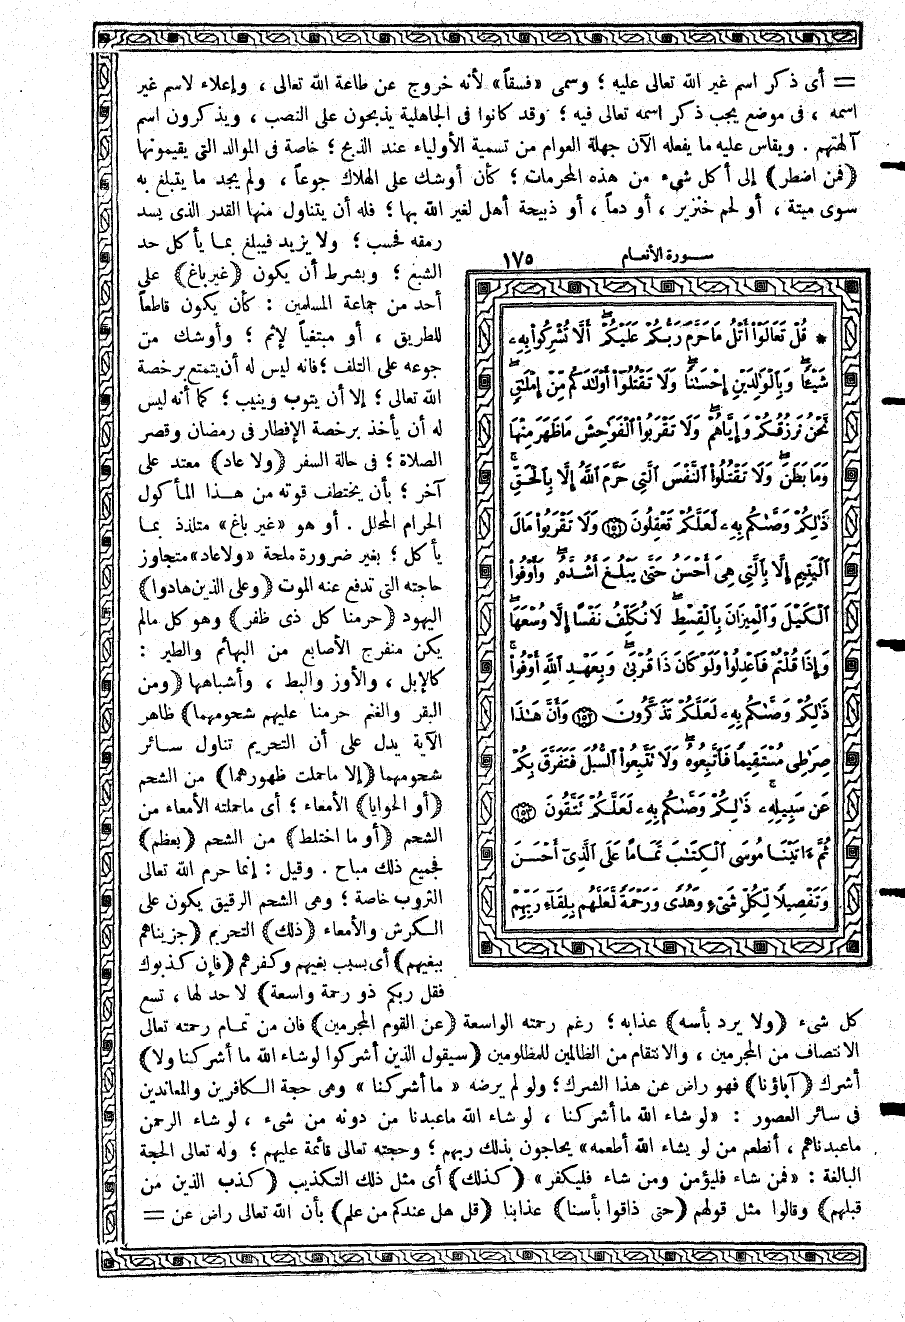 = أى ذكر اسم غير الله تعالى عليه ؛ وسمى «فسقاً» لأنه خروج عن طاعة الله تعالى ، وإعلاء لاسم غير
اسمه ، فى موضع يجب ذكر اسمه تعالى فيه ؛ وقد كانوا فى الجاهلية يذبحون على النصب ، ويذكرون اسم
آلهتهم . ويقاس عليه ما يفعله الآن جهلة العوام من تسمية الأولياء عند الذبح ؛ خاصة فى الموالد التى يقيمونها
(فمن اضطر) إلى أكل شىء من هذه المحرمات ؛ كأن أوشك على الهلاك جوعاً ، ولم يجد ما يتبلغ به
سوى ميتة ، أو لحم خنزير ، أو دماً ، أو ذبيحة أهل لغير الله بها ؛ فله أن يتناول منها القدر الذى يسد
رمقه فحسب ؛ ولا يزيد فيبلغ بما يأكل حد
الشبع ؛ وبشرط أن يكون (غير باغ) على
أحد من جماعة المسلمين : كأن يكون قاطعاً
للطريق ، أو مبتغياً لإثم ؛ وأوشك من
جوعه على التلف ؛ فإنه ليس له أن يتمتع برخصة
الله تعالى ؛ إلا أن يتوب وينيب ؛ كما أنه ليس
له أن يأخذ برخصة الإفطار فى رمضان وقصر
الصلاة ؛ فى حالة السفر (ولا عاد) معتد على
آخر ؛ بأن يختطف قوته من هذا المأكول
الحرام المحلل . أو هو «غير باغ» متلذذ بما
يأكل ؛ بغير ضرورة ملحة «ولا عاد» متجاوز
حاجته التى تدفع عنه الموت (وعلى الذين هادوا)
اليهود (حرمنا كل ذى ظفر) وهو كل مالم
يكن منفرج الأصابع من البهائم والطير :
كالإبل ، والأوز والبط ، وأشباهها (ومن
البقر والغنم حرمنا عليهم شحومهما) ظاهر
الآية يدل على أن التحريم تناول سائر
شحومهما (إلا ماحملت ظهورهما) من الشحم
(أو الحوايا) الأمعاء ؛ أى ماحملته الأمعاء من
الشحم (أو ما اختلط) من الشحم (بعظم)
فجميع ذلك مباح . وقيل : إنما حرم الله تعالى
الثروب خاصة ؛ وهى الشحم الرقيق يكون على
الكرش والأمعاء (ذلك) التحريم (جزيناهم
ببغيهم) أى بسبب بغيهم وكفرهم (فإن كذبوك
فقل ربكم ذو رحمة واسعة) لا حد لها ، تسع
سورة الأنعام ١٧٥
* قُلْ تَعَالَوْا۟ أَتْلُ مَا حَرَّمَ رَبُّكُمْ عَلَيْكُمْ ۖ أَلَّا تُشْرِكُوا۟ بِهِۦ
شَيْـًٔا ۖ وَبِٱلْوَٰلِدَيْنِ إِحْسَـٰنًا ۖ وَلَا تَقْتُلُوٓا۟ أَوْلَـٰدَكُم مِّنْ إِمْلَـٰقٍ ۖ
نَّحْنُ نَرْزُقُكُمْ وَإِيَّاهُمْ ۖ وَلَا تَقْرَبُوا۟ ٱلْفَوَٰحِشَ مَا ظَهَرَ مِنْهَا
وَمَا بَطَنَ ۖ وَلَا تَقْتُلُوا۟ ٱلنَّفْسَ ٱلَّتِى حَرَّمَ ٱللَّهُ إِلَّا بِٱلْحَقِّ ۚ
ذَٰلِكُمْ وَصَّىٰكُم بِهِۦ لَعَلَّكُمْ تَعْقِلُونَ ﴿١٥١﴾ وَلَا تَقْرَبُوا۟ مَالَ
ٱلْيَتِيمِ إِلَّا بِٱلَّتِى هِىَ أَحْسَنُ حَتَّىٰ يَبْلُغَ أَشُدَّهُۥ ۖ وَأَوْفُوا۟
ٱلْكَيْلَ وَٱلْمِيزَانَ بِٱلْقِسْطِ ۖ لَا نُكَلِّفُ نَفْسًا إِلَّا وُسْعَهَا ۖ
وَإِذَا قُلْتُمْ فَٱعْدِلُوا۟ وَلَوْ كَانَ ذَا قُرْبَىٰ ۖ وَبِعَهْدِ ٱللَّهِ أَوْفُوا۟ ۚ
ذَٰلِكُمْ وَصَّىٰكُم بِهِۦ لَعَلَّكُمْ تَذَكَّرُونَ ﴿١٥٢﴾ وَأَنَّ هَـٰذَا
صِرَٰطِى مُسْتَقِيمًا فَٱتَّبِعُوهُ ۖ وَلَا تَتَّبِعُوا۟ ٱلسُّبُلَ فَتَفَرَّقَ بِكُمْ
عَن سَبِيلِهِۦ ۚ ذَٰلِكُمْ وَصَّىٰكُم بِهِۦ لَعَلَّكُمْ تَتَّقُونَ ﴿١٥٣﴾
ثُمَّ ءَاتَيْنَا مُوسَى ٱلْكِتَـٰبَ تَمَامًا عَلَى ٱلَّذِىٓ أَحْسَنَ
وَتَفْصِيلًا لِّكُلِّ شَىْءٍ وَهُدًى وَرَحْمَةً لَّعَلَّهُم بِلِقَآءِ رَبِّهِمْ
كل شىء (ولا يرد بأسه) عذابه ؛ رغم رحمته الواسعة (عن القوم المجرمين) فان من تمام رحمته تعالى
الانتصاف من المجرمين ، والانتقام من الظالمين للمظلومين (سيقول الذين أشركوا لو شاء الله ما أشركنا ولا)
أشرك (آباؤنا) فهو راض عن هذا الشرك ؛ ولو لم يرضه « ما أشركنا » وهى حجة الكافرين والمعاندين
فى سائر العصور : «لو شاء الله ما أشركنا ، لو شاء الله ماعبدنا من دونه من شىء ، لو شاء الرحمن
ماعبدناهم ، أنطعم من لو يشاء الله أطعمه» يحاجون بذلك ربهم ؛ وحجته تعالى قائمة عليهم ؛ وله تعالى الحجة
البالغة : «فمن شاء فليؤمن ومن شاء فليكفر» (كذلك) أى مثل ذلك التكذيب (كذب الذين من
قبلهم) وقالوا مثل قولهم (حتى ذاقوا بأسنا) عذابنا (قل هل عندكم من علم) بأن الله تعالى راض عن =